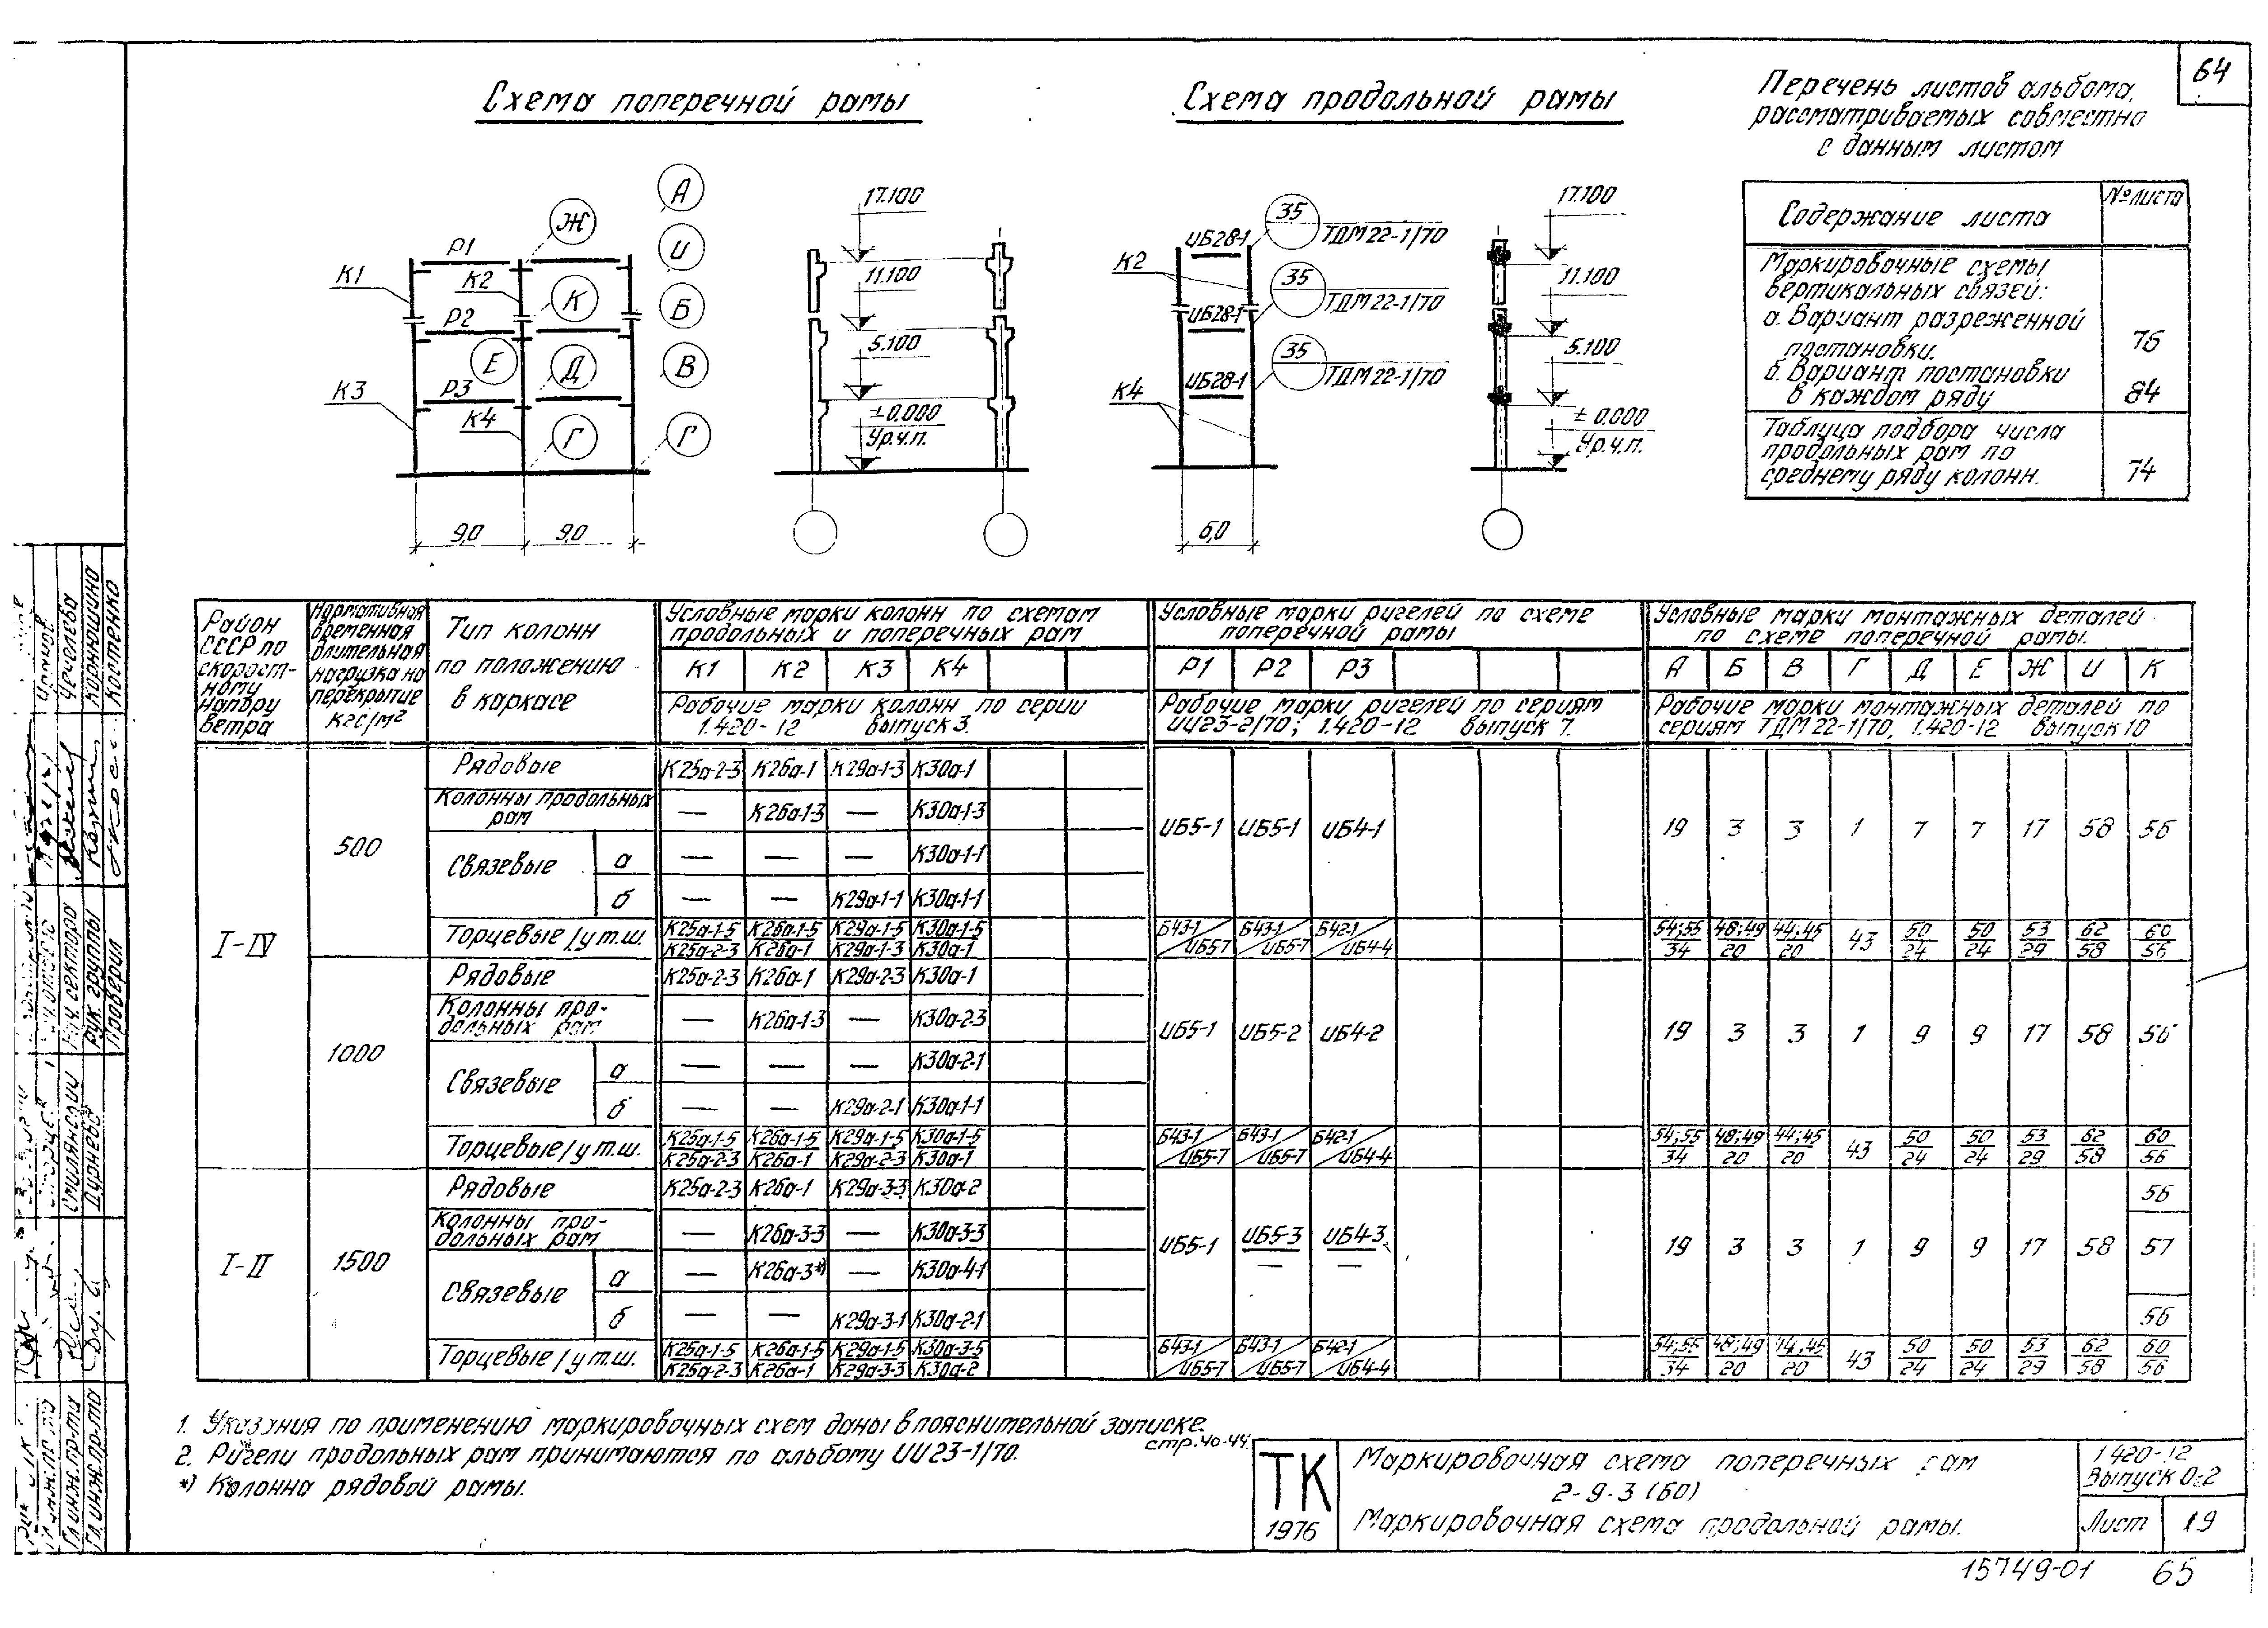 64
Схема поперечной рамы
Схема продольной рамы
Перечень листов альбома,
рассматриваемых совместно
с данным листом
Содержание листа
№ листа
Маркировочные схемы
вертикальных связей:
а. Вариант разреженной
постановки.
76
б. Вариант постановки
в каждом ряду
84
Таблица подбора числа
продольных рам по
среднему ряду колонн.
74
К1 Р1 К2 Ж А
К И
Р2 Б
Е Д В
К3 Р3 К4 Г Г
9,0 9,0
17.100
11.100
5.100
±0.000
Ур.ч.п.
К2 ИБ28-1 35 ТДМ22-1/70
ИБ28-1 35 ТДМ22-1/70
К4 ИБ28-1 35 ТДМ22-1/70
6,0
17.100
11.100
5.100
±0.000
Ур.ч.п.
Район СССР по скоростному напору ветра
Нормативная временная длительная нагрузка на перекрытие кгс/м²
Тип колонн по положению в каркасе
Условные марки колонн по схемам продольных и поперечных рам
К1 К2 К3 К4
Рабочие марки колонн по серии 1.420-12 выпуск 3.
Условные марки ригелей по схеме поперечной рамы
Р1 Р2 Р3
Рабочие марки ригелей по сериям ИИ23-2/70; 1.420-12 выпуск 7.
Условные марки монтажных деталей по схеме поперечной рамы.
А Б В Г Д Е Ж И К
Рабочие марки монтажных деталей по сериям ТДМ22-1/70, 1.420-12 выпуск 10
I-IV
500
Рядовые К25а-2-3 К26а-1 К29а-1-3 К30а-1
Колонны продольных рам — К26а-1-3 — К30а-1-3
Связевые а — — — К30а-1-1
б — — К29а-1-1 К30а-1-1
ИБ5-1 ИБ5-1 ИБ4-1 19 3 3 1 7 7 17 58 56
Торцевые/у т.ш. К25а-1-5 К26а-1-5 К29а-1-5 К30а-1-5 Б43-1 Б43-1 Б42-1 54;55 48;49 44;45 43 50 50 53 62 60
К25а-2-3 К26а-1 К29а-1-3 К30а-1 ИБ5-7 ИБ5-7 ИБ4-4 34 20 20 24 24 29 58 56
1000
Рядовые К25а-2-3 К26а-1 К29а-2-3 К30а-1
Колонны продольных рам — К26а-1-3 — К30а-2-3
Связевые а — — — К30а-2-1
б — — К29а-2-1 К30а-1-1
ИБ5-1 ИБ5-2 ИБ4-2 19 3 3 1 9 9 17 58 56
Торцевые/у т.ш. К25а-1-5 К26а-1-5 К29а-1-5 К30а-1-5 Б43-1 Б43-1 Б42-1 54;55 48;49 44;45 43 50 50 53 62 60
К25а-2-3 К26а-1 К29а-2-3 К30а-1 ИБ5-7 ИБ5-7 ИБ4-4 34 20 20 24 24 29 58 56
I-II
1500
Рядовые К25а-2-3 К26а-1 К29а-3-3 К30а-2 56
Колонны продольных рам — К26а-3-3 — К30а-3-3
Связевые а — К26а-3*) — К30а-4-1
б — — К29а-3-1 К30а-2-1 56
ИБ5-1 ИБ5-3 ИБ4-3 19 3 3 1 9 9 17 58 57
— —
Торцевые/у т.ш. К25а-1-5 К26а-1-5 К29а-1-5 К30а-3-5 Б43-1 Б43-1 Б42-1 54;55 48;49 44;45 43 50 50 53 62 60
К25а-2-3 К26а-1 К29а-3-3 К30а-2 ИБ5-7 ИБ5-7 ИБ4-4 34 20 20 24 24 29 58 56
1. Указания по применению маркировочных схем даны в пояснительной записке.
стр. 40-44.
2. Ригели продольных рам принимаются по альбому ИИ23-1/70.
*) Колонна рядовой рамы.
ТК
1976
Маркировочная схема поперечных рам
2-9-3 (60)
Маркировочная схема продольной рамы.
1420-12
Выпуск 0-2
Лист 19
15749-01 65
Чечелева
Конюшина
Костенко
Нач. сектора
Рук. группы
Проверил
Смилянский
Дурнева
Гл. инж. пр-та
Гл. инж. пр-та